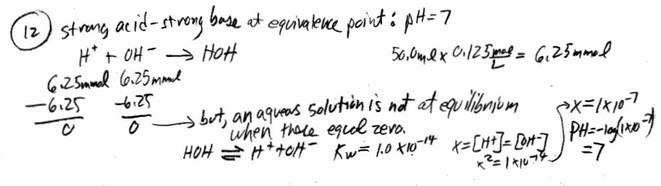 12 strong acid-strong base at equivalence point: pH=7
H⁺ + OH⁻ → HOH
50.0mL x 0.125 mol/L = 6.25mmol
6.25mmol 6.25mmol
-6.25 -6.25
0 0 → but, an aqueous solution is not at equilibrium
when those equal zero.
HOH ⇌ H⁺+OH⁻ Kw = 1.0 x10⁻¹⁴ x=[H+]=[OH-]
x²=1x10⁻¹⁴
→x=1x10⁻⁷
PH=-log(1x10⁻⁷)
=7